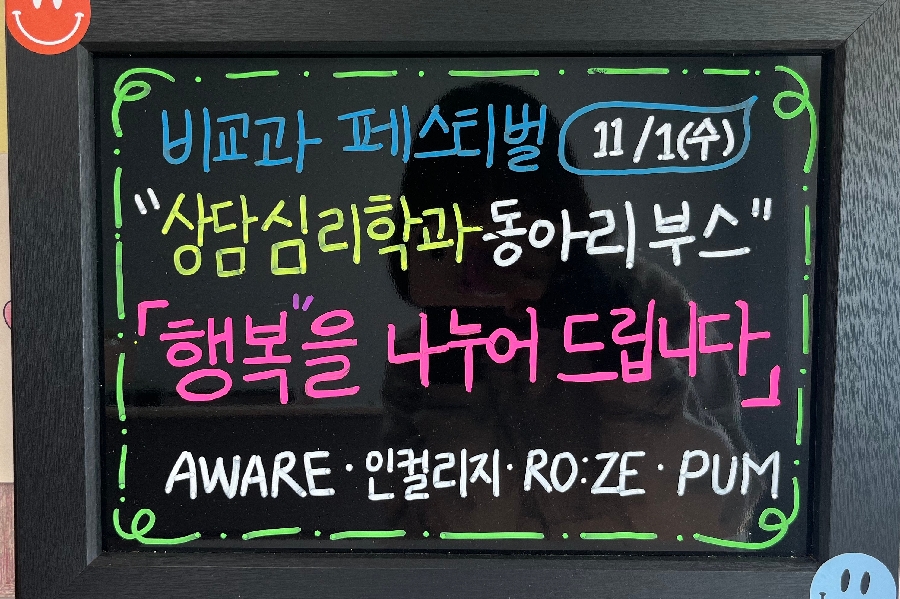 비교과 페스티벌 11/1(수)
"상담심리학과 동아리 부스"
「행복"을 나누어 드립니다」
AWARE · 인컬리지 · RO:ZE · PUM